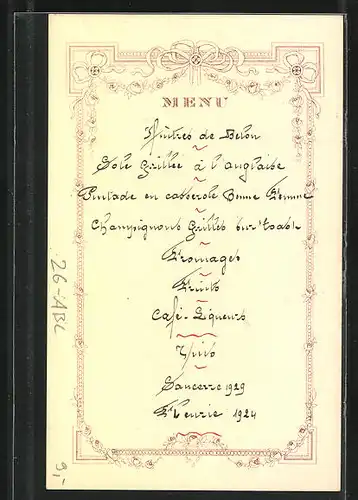 MENU
Huîtres de Belon
Sole Grillée à l'anglaise
Pintade en casserole Bonne Femme
Champignons Grillés sur Toasts
Fromages
Fruits
Café - Liqueurs
Vins
Sancerre 1929
Fleurie 1924
26-ABC
9,-